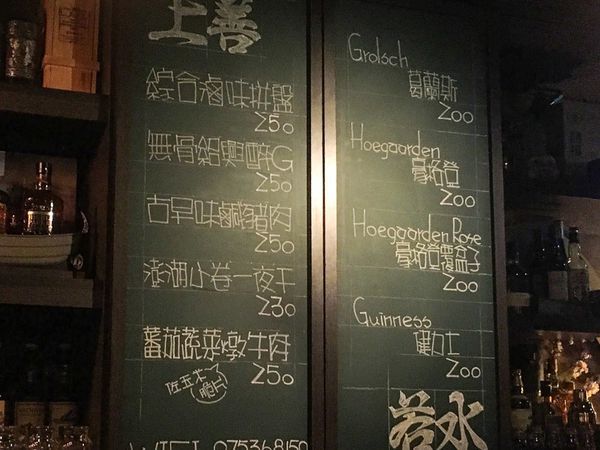 上善
綜合滷味拼盤
250
無骨紹興醉G
250
古早味鹹豬肉
250
澎湖小卷一夜干
230
蕃茄蔬菜燉牛肉
佐玉米脆片
250
WIFI 075368150
Grolsch
葛蘭斯
200
Hoegaarden
豪格登
200
Hoegaarden Rose
豪格登覆盆子
200
Guinness
健力士
200
若水